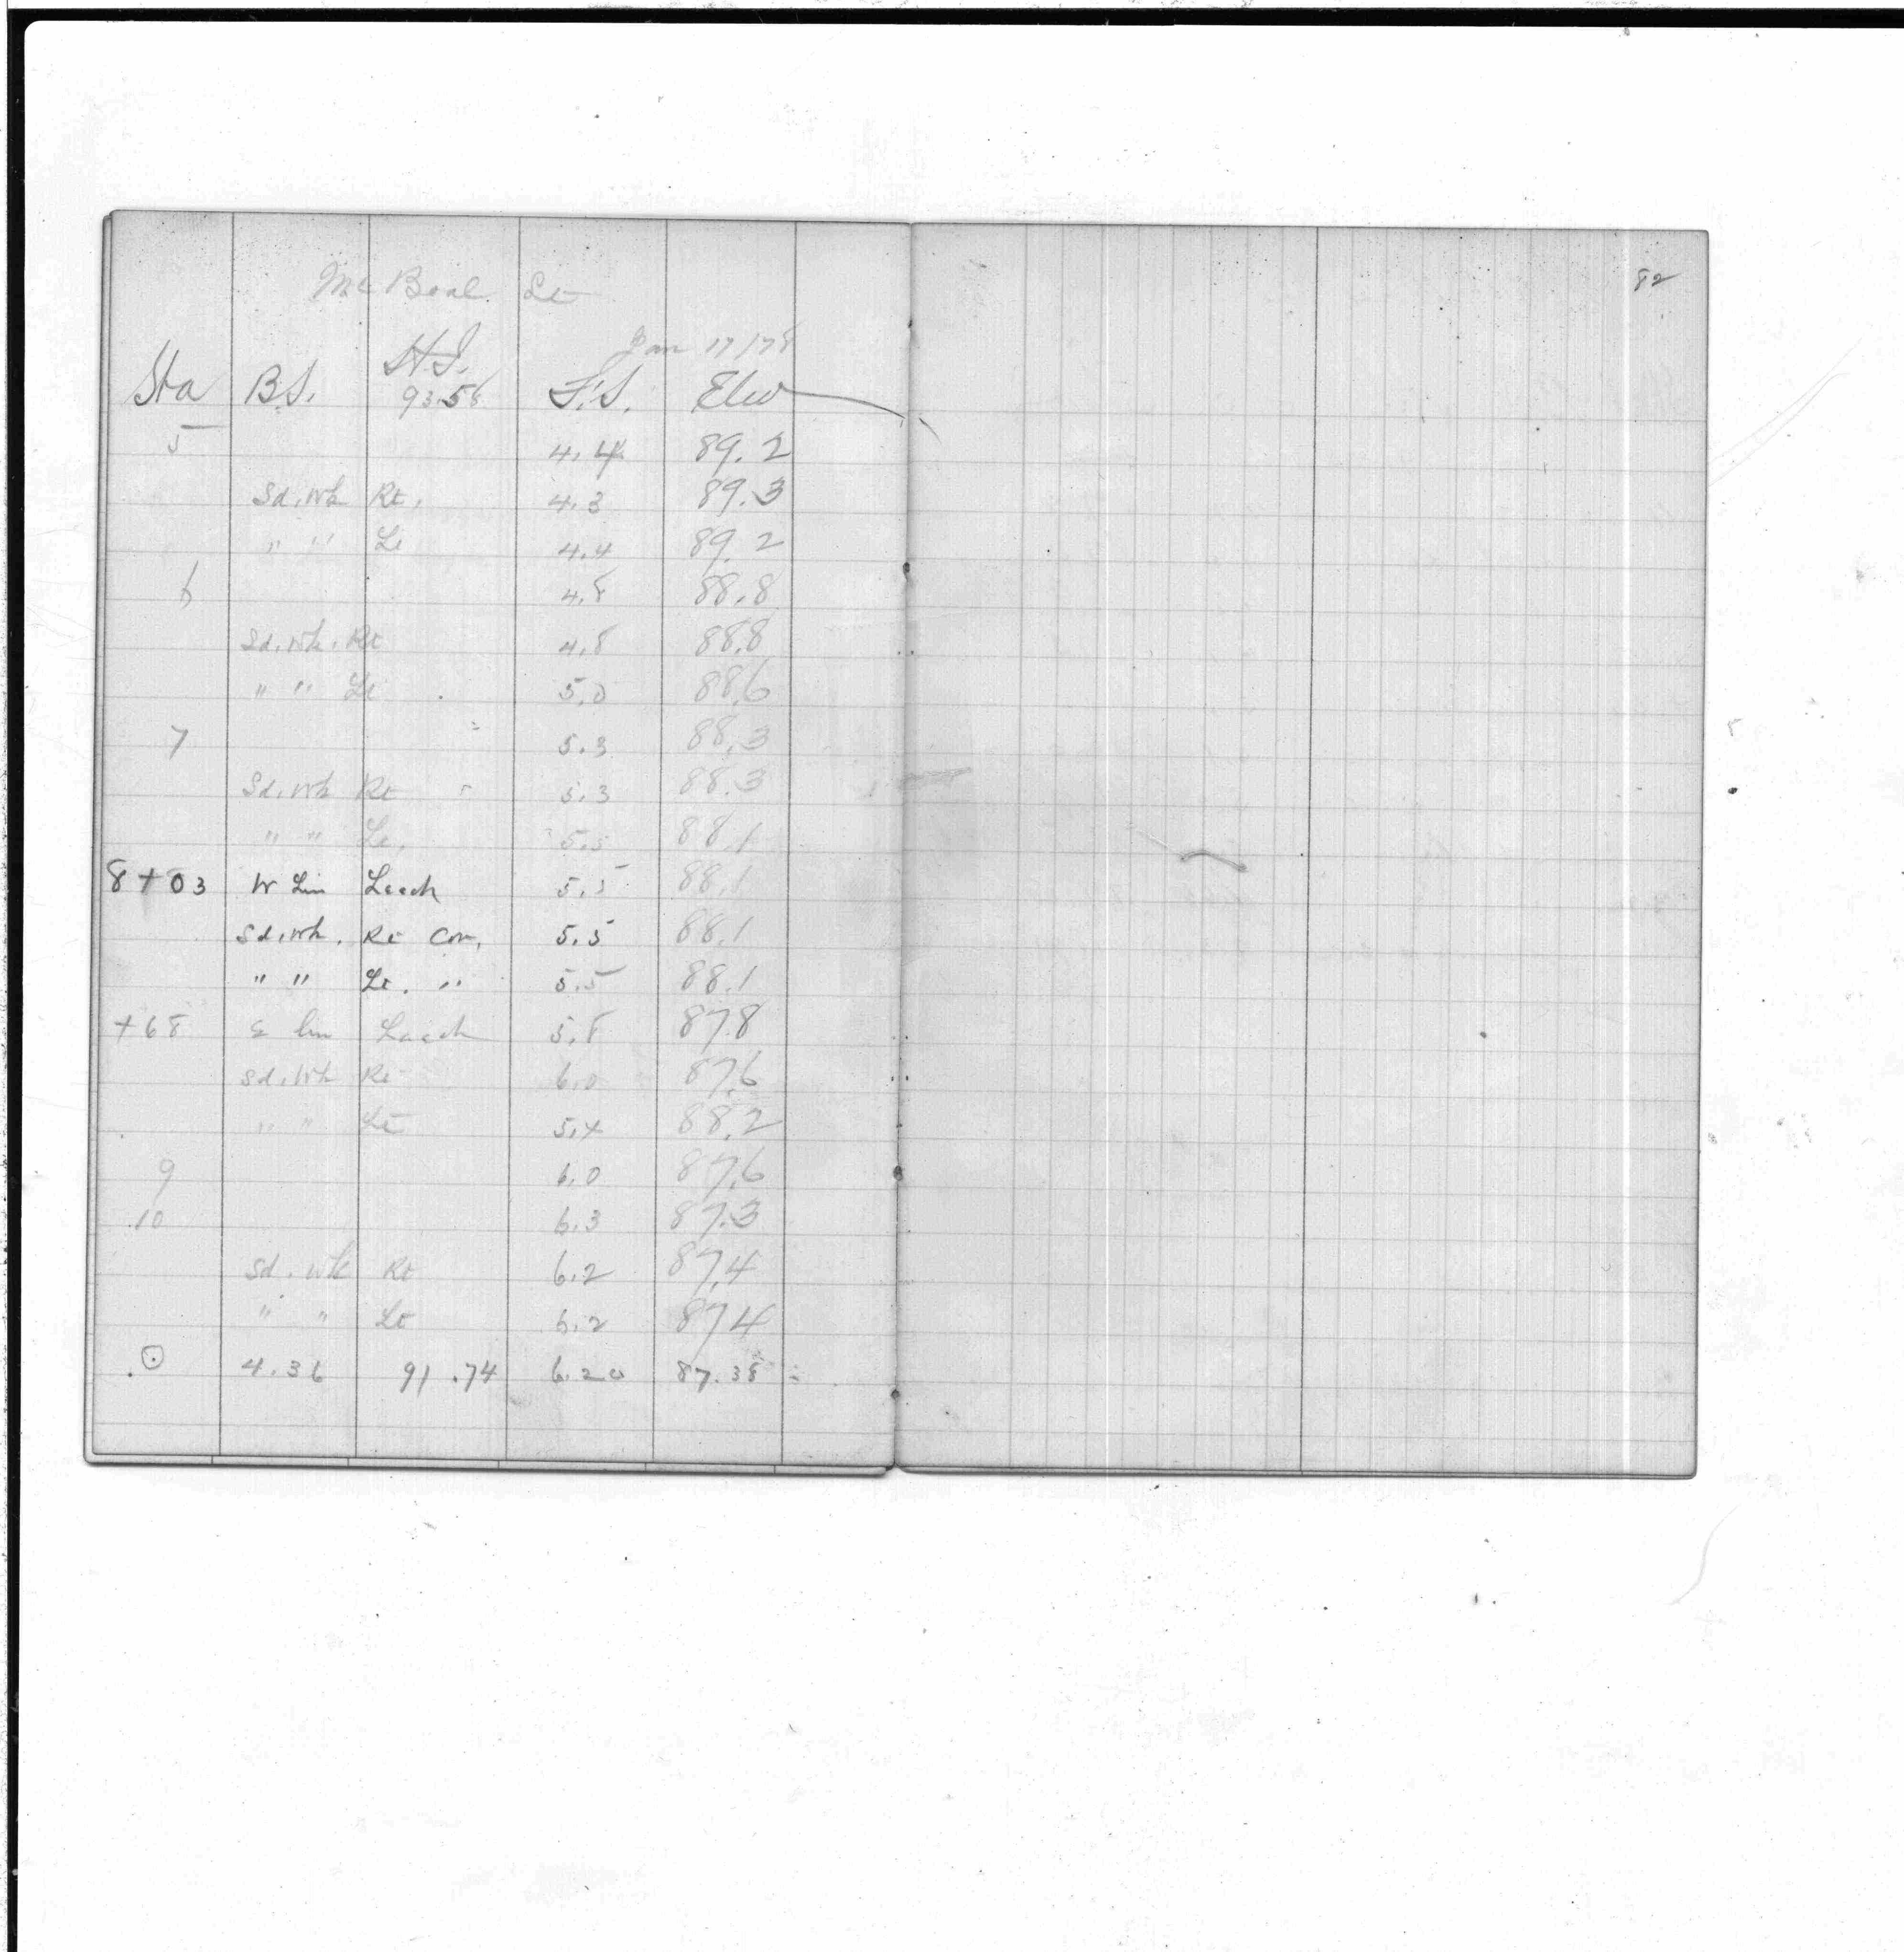 McBoal St
Jan 17/78
Sta B.S. H.I. F.S. Elev
93.58
5 4.4 89.2
Sd. Wk Rt. 4.3 89.3
" " Lt 4.4 89.2
6 4.8 88.8
Sd. Wk. Rt 4.8 88.8
" " Lt 5.0 88.6
7 5.3 88.3
Sd. Wk Rt 5.3 88.3
" " Lt. 5.5 88.1
8+03 W Lin Leech 5.5 88.1
Sd. Wk. Rt Cor. 5.5 88.1
" " Lt. " 5.5 88.1
+68 E lin Leech 5.8 87.8
Sd. Wk Rt 6.0 87.6
" " Lt 5.4 88.2
9 6.0 87.6
10 6.3 87.3
Sd. Wk Rt 6.2 87.4
" " Lt 6.2 87.4
4.36 91.74 6.20 87.38
82